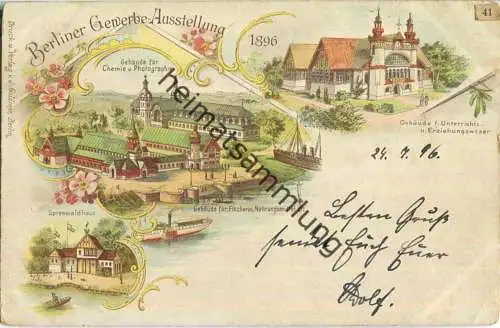 Berliner Gewerbe-Ausstellung
1896
41
Gebäude für
Chemie u. Photographie
Gebäude f. Unterrichts-
u. Erziehungswesen
24. 7. 96.
Gebäude für Fischerei, Nahrungsmittel
Spreewaldhaus
Besten Gruß
sendet Euch Euer
Adolf.
heimatsammlung
Druck u. Verlag v.